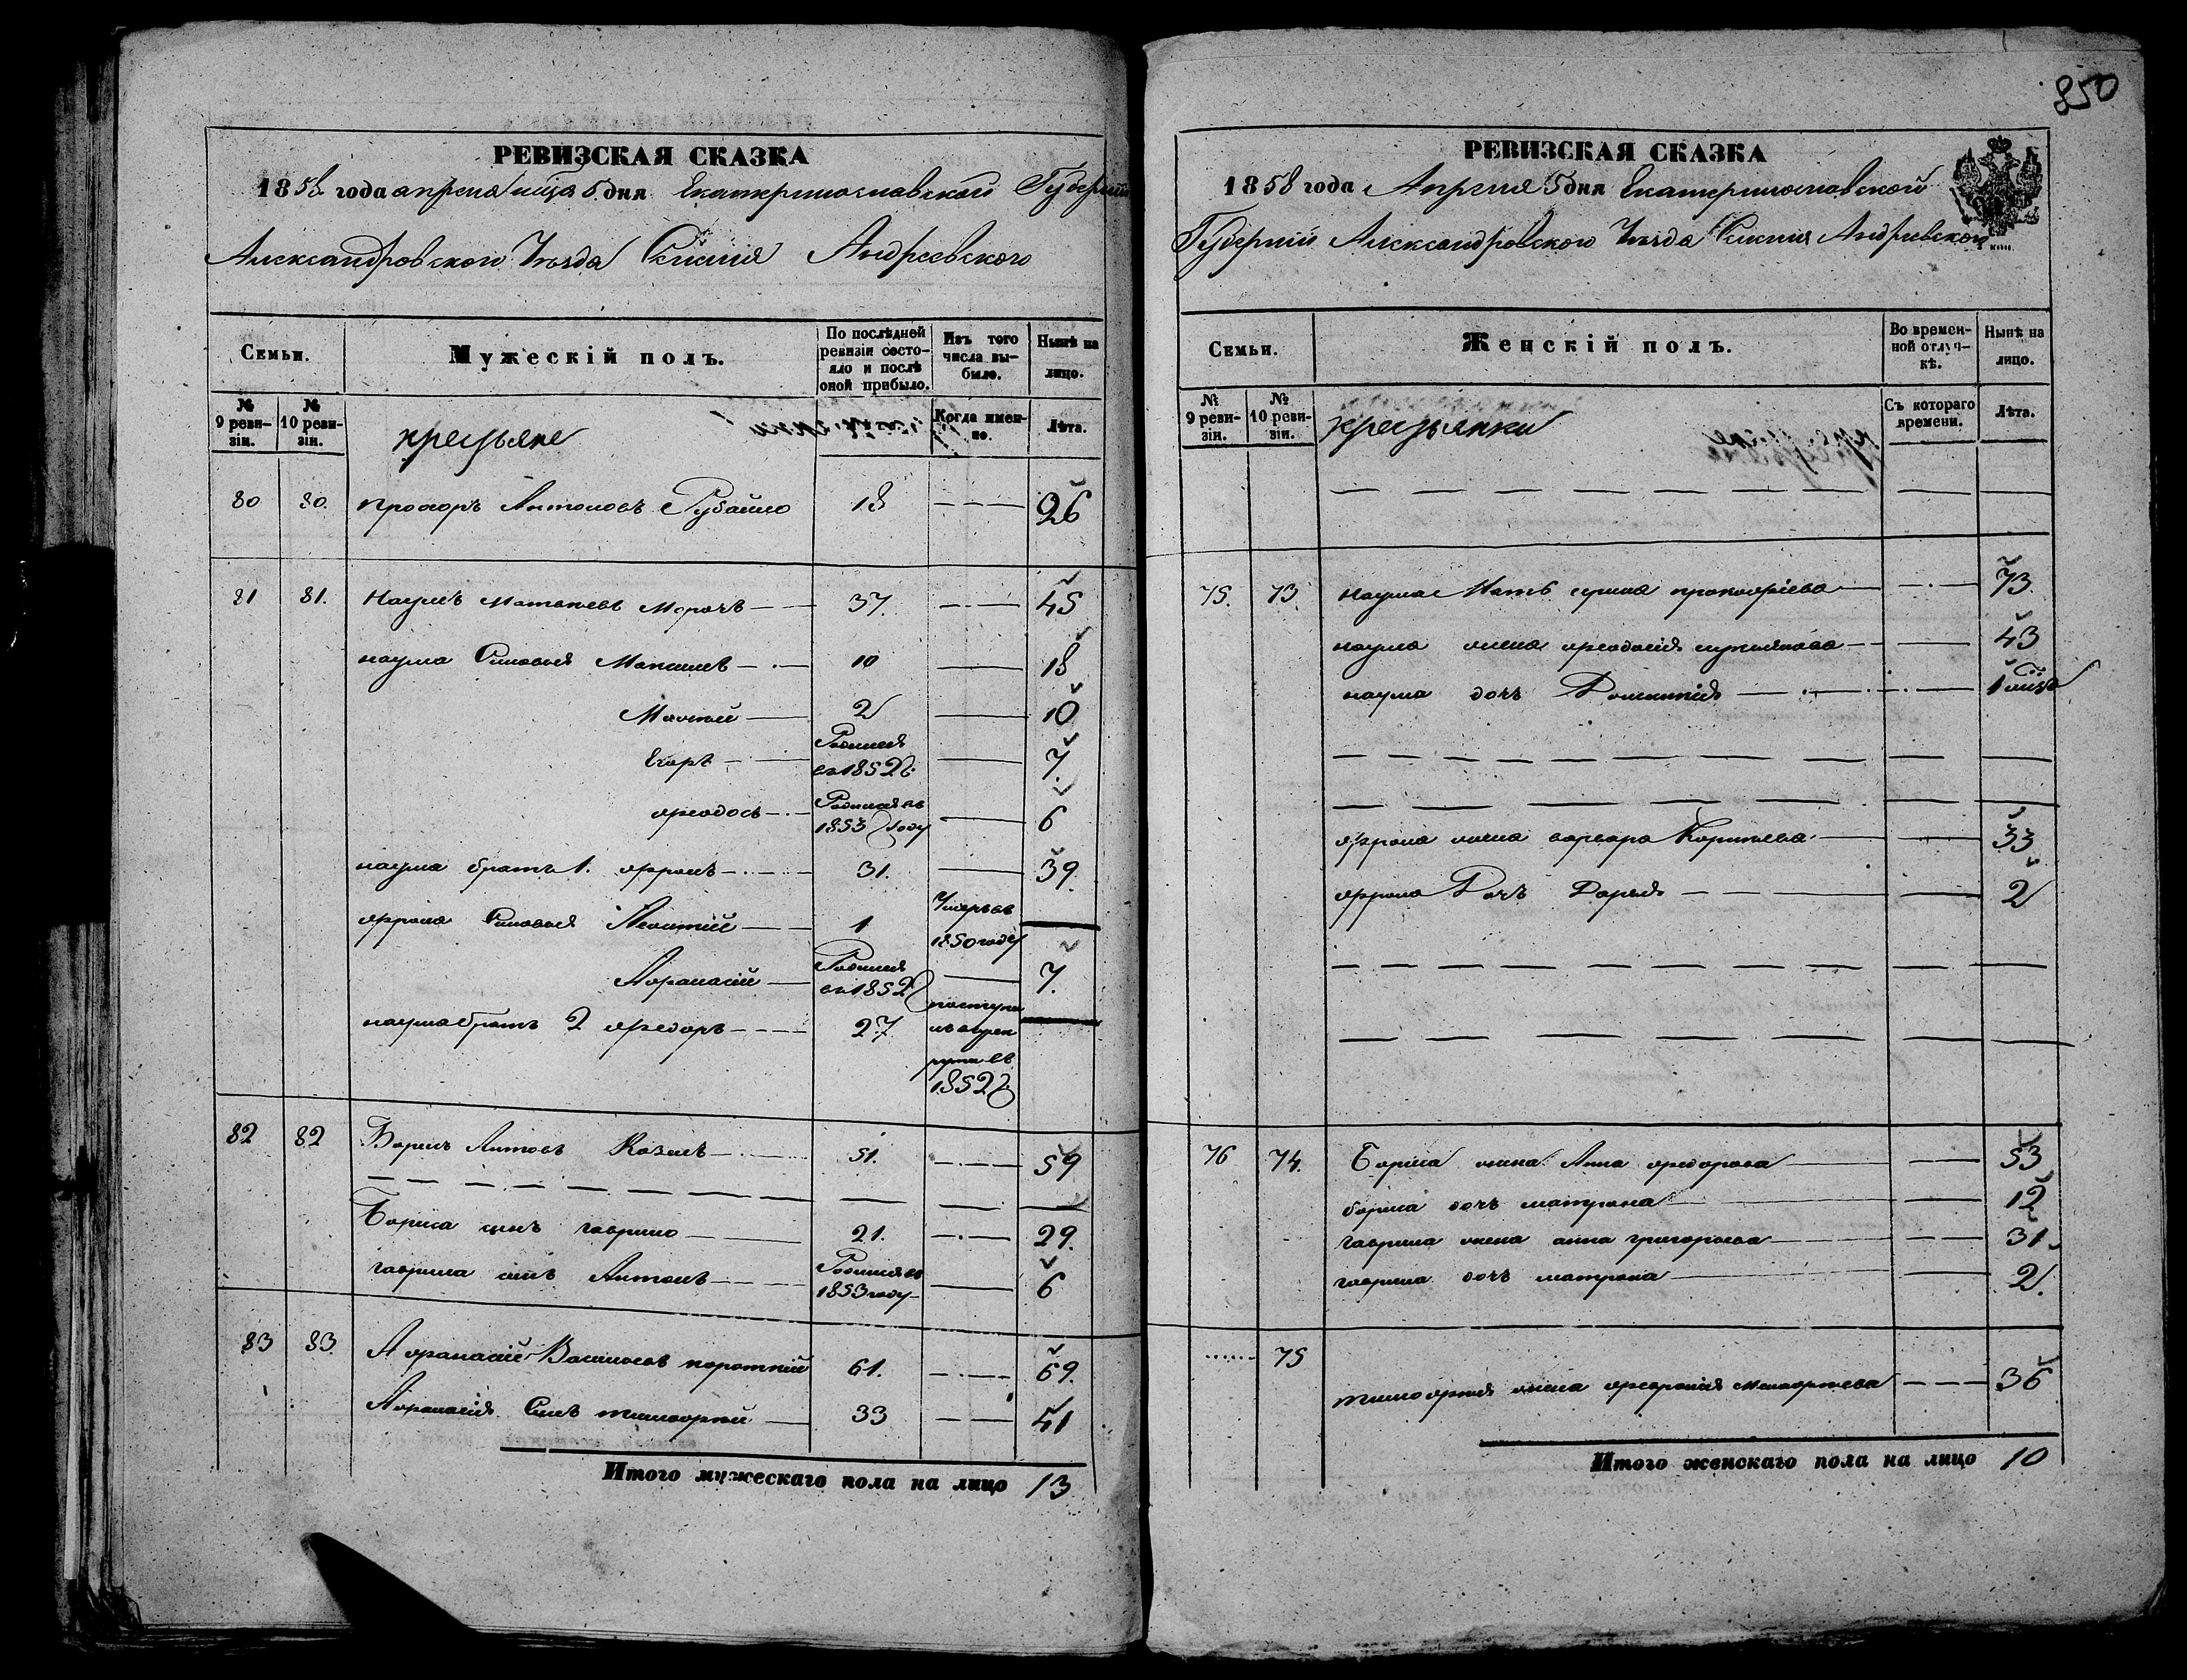 850
РЕВИЗСКАЯ СКАЗКА
1858 года апреля мца 5 дня Екатеринославской Губерніи
Александровского Уезда Селенія Андреевского
Семьи.
Мужескій полъ.
По послѣдней ревизіи состояло и послѣ оной прибыло.
Изъ того числа выбыло.
Нынѣ на лицо.
№ 9 ревизіи.
№ 10 ревизіи.
крестьяне
Когда именно.
Лѣта.
80 80. прохоръ Антоновъ Рубайло 18 26
81 81. наумъ Матвѣевъ Морозъ 37. 45
наума Сыновья Максимъ 10 18
Моисей 2 10
Егоръ Родился въ 1852 г. 7.
феодосъ Родился въ 1853 году 6
наума братъ 1. ефремъ 31. 39.
Сыновья Леонтий 1 Умеръ въ 1850 году
Афанасій Родился въ 1852 7.
наума братъ 2 федоръ 27 поступилъ в рекруты въ 1852 г
82 82 Борисъ Антовъ Козелъ 51. 59
Бориса сынъ гаврило 21. 29.
гаврила сынъ Антонъ Родился въ 1853 году 6
83 83. Афанасій Василіевъ короткий 61. 69.
Афанасія Сынъ тимофей 33 41
Итого мужескаго пола на лицо 13
РЕВИЗСКАЯ СКАЗКА
1858 года Апреля 5 дня Екатеринославской
Губерній Александровского Уезда Селения Андреевского
Семьи.
Женскій полъ.
Во временной отлучкѣ.
Нынѣ на лицо.
№ 9 ревизіи.
№ 10 ревизіи.
крестьянки
Съ котораго времени.
Лѣта.
75. 73. наума Мать ирина прокофіева 73.
наума жена феодосія лукьянова 43
наума дочь 1 мця
жена варвара 33
Дочь Дарья 2
76 74. Бориса жена Анна федорова 53
бориса дочь матрона 12
гаврила жена анна григорьева 31.
гаврила дочь матрона 2.
75 тимофея жена 36
Итого женскаго пола на лицо 10